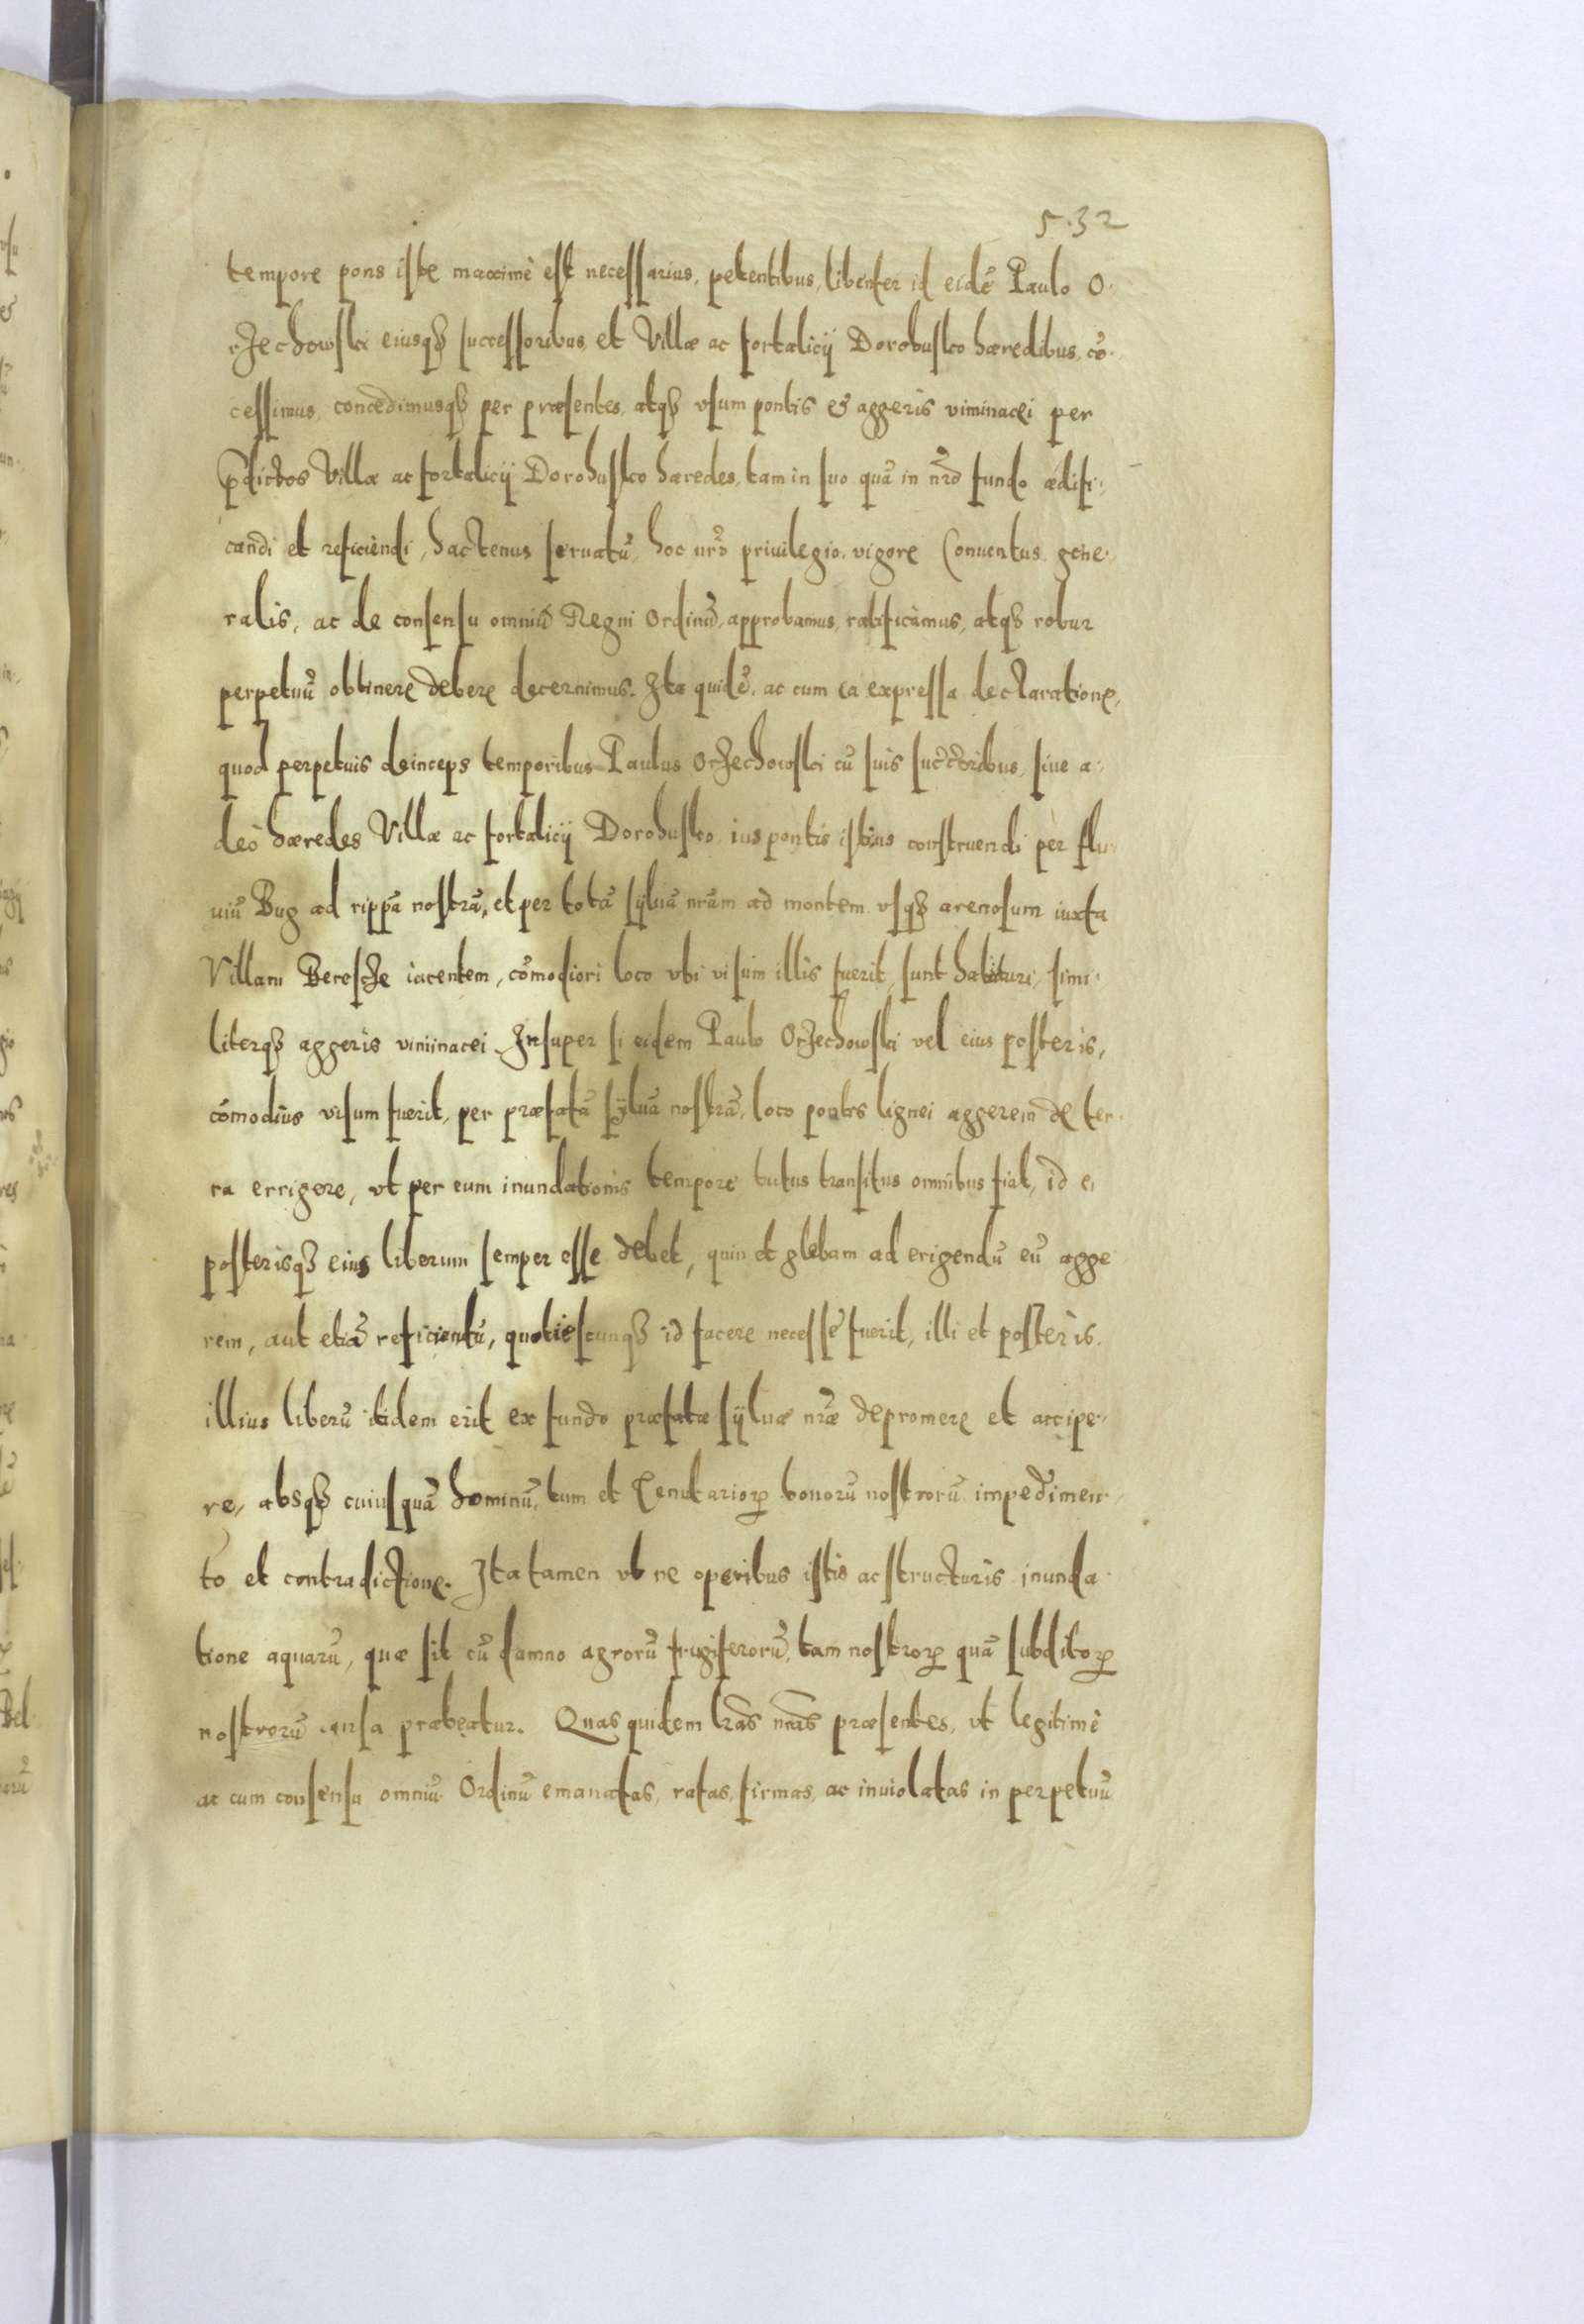 5.32
tempore pons iste maximè est necessarius, petentibus, libenter id eidẽ Paulo O-
rzechowski eiusqȝ successoribus, et Villæ ac fortalicij Dorohusko hæredibus, cõ-
cessimus, concedimusqȝ per præsentes, atqȝ vsum pontis & aggeris viminacei per
p̃dictos Villæ ac fortalicij Dorohusko hæredes, tam in suo quã in nr̃o fundo ædifi-
candi et reficiendi, hactenus seruatũ, hoc nr̃o priuilegio, vigore Conuentus gene-
ralis, ac de consensu omniũ Regni Ordinũ, approbamus, ratificamus, atqȝ robur
perpetuũ obtinere debere decernimus. Ita quidẽ, ac cum ea expressa declaratione,
quod perpetuis deinceps temporibus Paulus Orzechowski cũ suis succ̃oribus, siue a-
deò hæredes Villæ ac fortalicij Dorohusko, ius pontis istius construendi per flu-
uiũ Bug ad rippã nostrã, et per totã syluã nrãm ad montem vsqȝ arenosum iuxta
Villam Beresche iacentem, cõmodiori loco vbi visum illis fuerit, sunt habituri, simi-
literqȝ aggeris viminacei. Insuper si eidem Paulo Orzechowski vel eius posteris,
cõmodius visum fuerit, per præfatã syluã nostrã, loco pontis lignei aggerem de ter-
ra errigere, vt per eum inundationis tempore tutus transitus omnibus fiat, id ei
posterisqȝ eius liberum semper esse debet, quin et glebam ad erigendũ eũ agge
rem, aut etiã reficientũ, quotiescunqȝ id facere necesse fuerit, illi et posteris
illius liberũ itidem erit ex fundo præfatæ syluæ nr̃æ depromere et accipe-
re, absqȝ cuiusquã hominũ, tum et Tenutarioꝝ bonorũ nostrorũ impedimen-
to et contradictione. Ita tamen vt ne operibus istis ac structuris inunda-
tione aquarũ, quæ sit cũ damno agrorũ frugiferorũ, tam nostroꝝ quã subditoꝝ
nostrorũ causa præbeatur. Quas quidem lr̃as nr̃as præsentes, vt legitimè
ac cum consensu omniũ Ordinũ emanatas, ratas, firmas, ac inuiolatas in perpetuũ